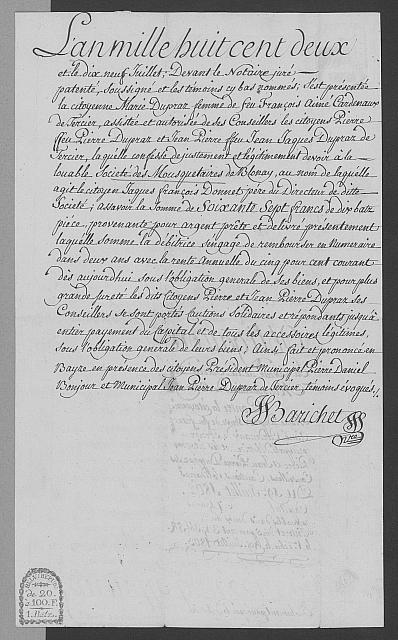 L'an mille huit cent deux
et le dix neuf Juillet; Devant le Notaire juré
patenté, soussigné et les temoins cy bas nommés; s'est presentée
la citoyenne Marie Dupraz femme de feu François Aimé Cardenaux
de Tercier, assistée et autorisée de ses Conseillers les citoyens Pierre
ffeu Pierre Dupraz et Jean Pierre ffeu Jean Jaques Dupraz de
Tercier, laquelle confesse de justement et legitimement devoir à la
louable Societé des Mousquetaires de Blonay, au nom de laquelle
agit le citoyen Jaques François Donnet père du Directeur de dite
Societé; assavoir la somme de Soixante Sept francs de dix batz
pièce, provenante pour argent prêté et delivré presentement
laquelle somme la débitrice s'engage de rembourser en Numeraire
dans deux ans avec la rente Annuelle du cinq pour cent courant
dès aujourdhui sous l'obligation generale de ses biens, et pour plus
grande sureté les dits Citoyens Pierre et Jean Pierre Dupraz ses
Conseillers se sont portés Cautions solidaires et répondants jusqu'à
entier payement du Capital et de tous les accessoires légitimes,
sous l'obligation generale de leurs biens; Ainsi fait et prononcé en
en presence des citoyens President Municipal Pierre Daniel
Bonjour et Municipal Jean Pierre Dupraz de Tercier, temoins évoqués.
Barichet
de 20.
à 100. F.
1. Batz.